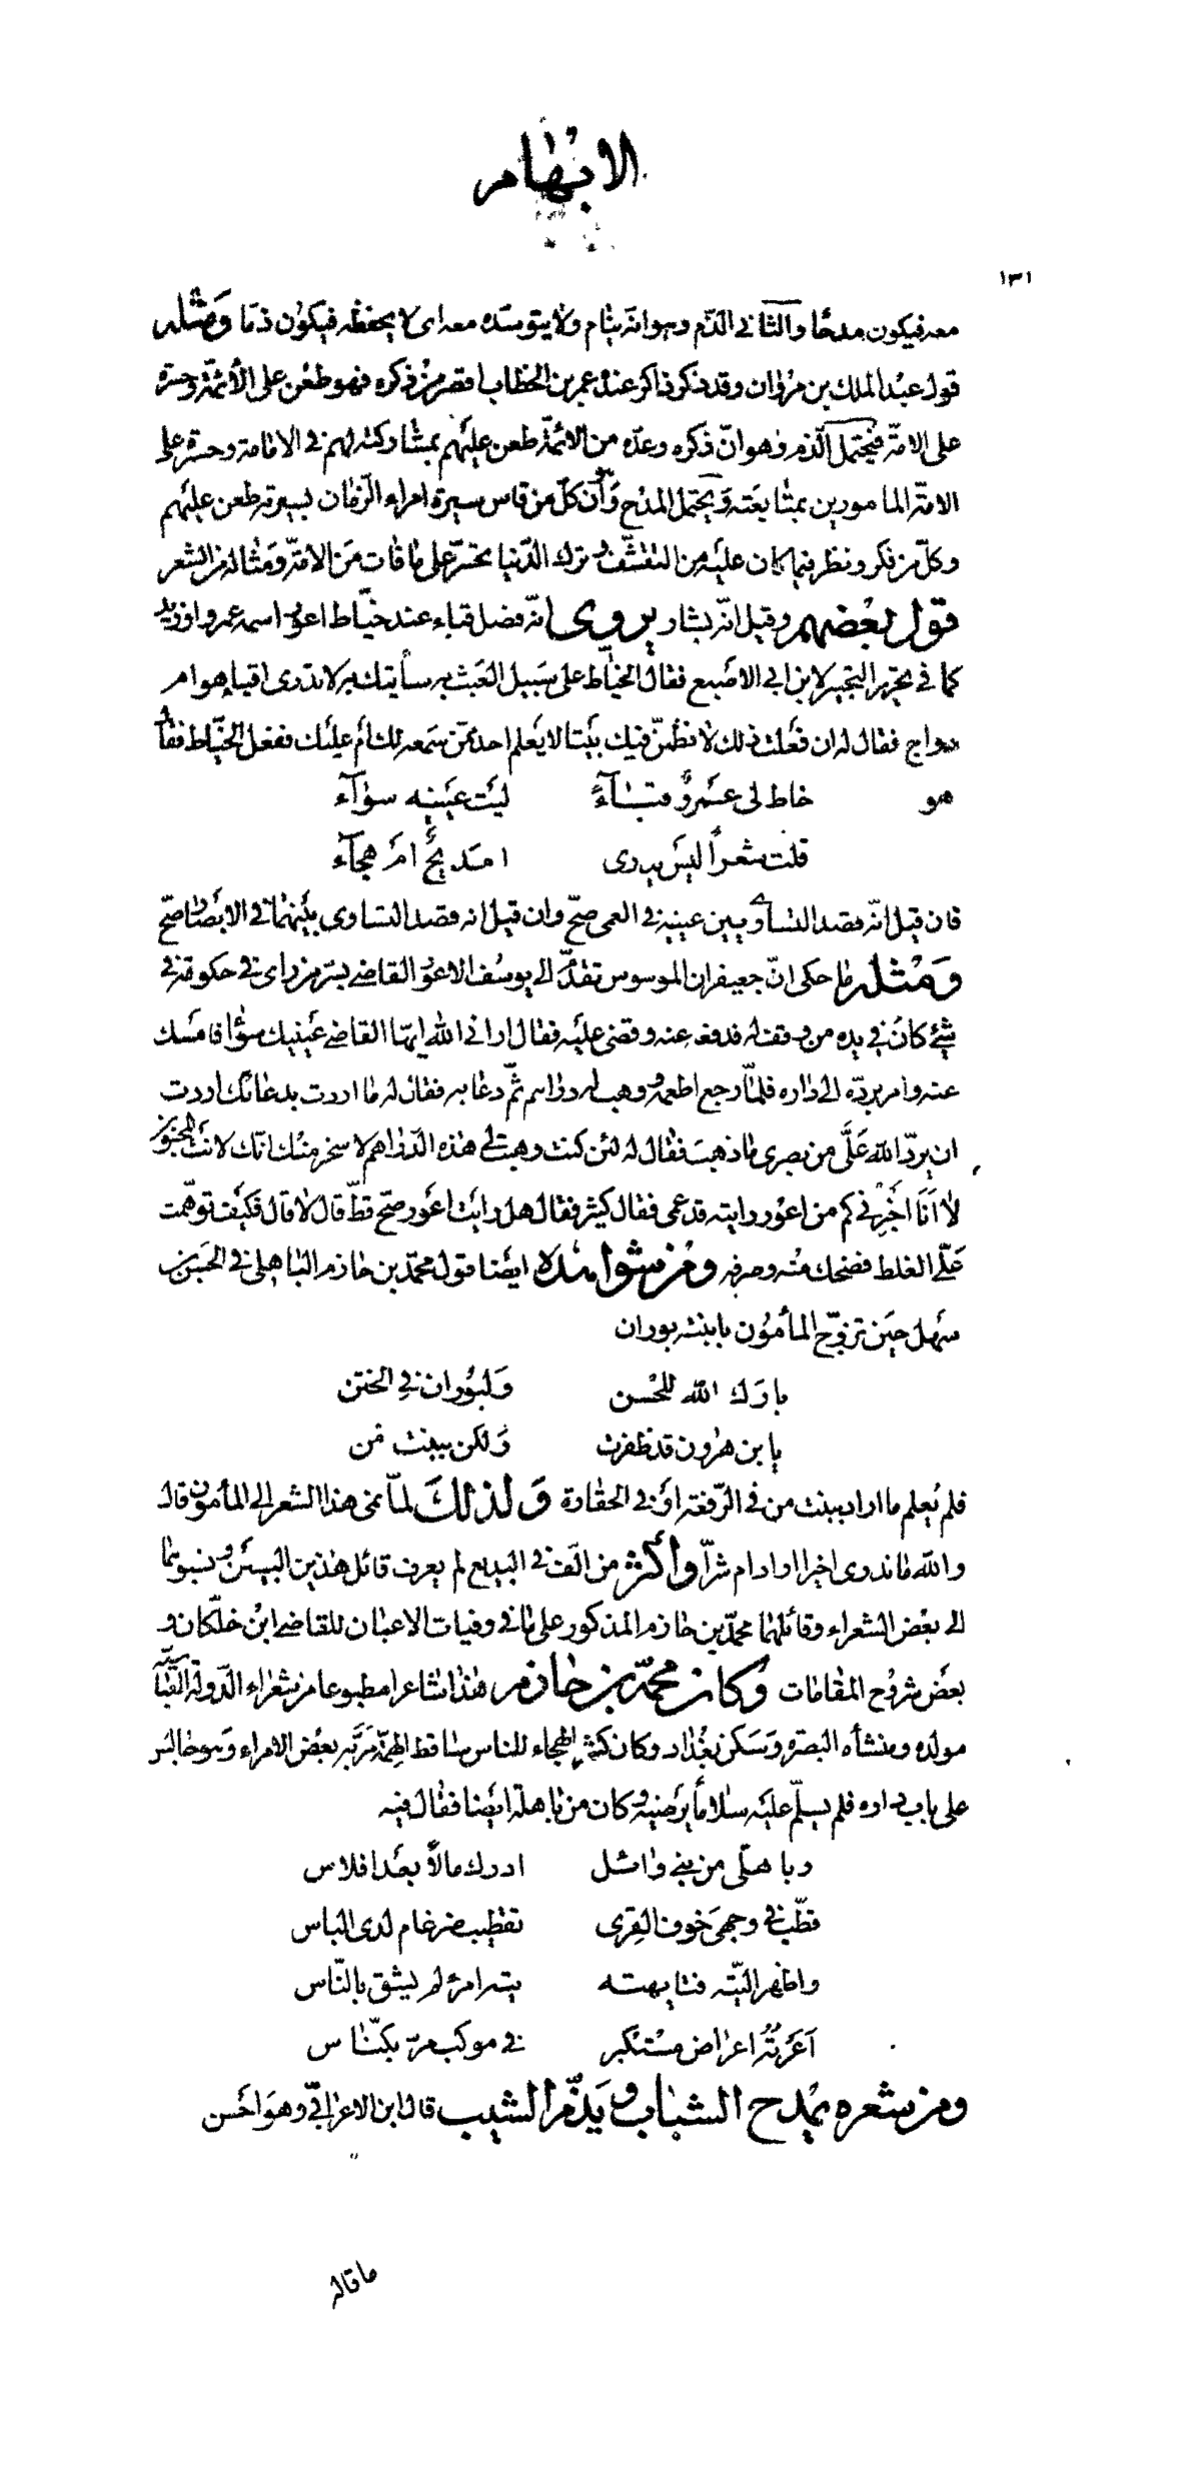 الابهام
١٣١
معه فيكون مدحا والثاني الذم وهو انه ينام ولا يتوسده معه اى لا يحفظه فيكون ذما ومثله
قول عبد الملك بن مروان وقد ذكر ذاكر عنده عمر بن الخطاب اقصر من ذكره فهو طعن على الأئمة وحسرة
على الامة فيحتمل الذم وهو ان ذكره وعده من الائمة طعن عليهم بمشاركته لهم في الامامة وحسرة على
الامة المامورين بمتابعته ويحتمل المدح وأن كل من قاس سيرة امراء الزمان بسيرته طعن عليهم
وكل من فكر ونظر فيما كان عليه من التقشف وترك الدنيا تحسر على ما فات من الامة ومثاله من الشعر
قول بعضهم وقيل انه بشار يروى انه فصل قباء عند خياط اعور اسمه عمرو او زيد
كما في تحرير التحبير لابن ابى الاصبع فقال الخياط على سبيل العبث به سأتيك به لا تدرى اقباء هو ام
دواج فقال له ان فعلت ذلك لانظمن فيك بيتا لا يعلم احد ممن سمعه لك ام عليك ففعل الخياط فقال
هو
خاط لى عمرو قباء ليت عينيه سواء
قلت شعرا ليس يدرى امديح ام هجاء
فان قيل انه قصد التساوى بين عينيه في العمى صح وان قيل انه قصد التساوى بينهما في الابصار صح
ومثله ما حكى ان جعيفران الموسوس تقدم الى يوسف الاعور القاضى بسر من راى في حكومة في
شئ كان في يده من وقف له فدفعه عنه وقضى عليه فقال ارانى الله ايها القاضى عينيك سواء فامسك
عنه وامر برده الى داره فلما رجع اطعمه ووهب له دراهم ثم دعا به فقال له ما اردت بدعائك اردت
ان يرد الله على من بصرى ما ذهب فقال له لئن كنت وهبت لى هذه الدراهم لاسخر منك انك لانت المجنون
لا انا اخبرنى كم من اعور رايته قد عمى فقال كثير فقال هل رايت اعور صح قط قال لا قال فكيف توهمت
على الغلط فضحك منه وصرفه ومن شواهده ايضا قول محمد بن حازم الباهلى في الحسن بن
سهل حين تزوج المأمون بابنته بوران
بارك الله للحسن ولبوران في الختن
يا بن هرون قد ظفرت ولكن ببنت من
فلم يعلم ما اراد ببنت من في الرفعة او في الحقارة ولذلك لما نمى هذا الشعر الى المأمون قال
والله ما ندرى اخيرا اراد ام شرا وأكثر من الف في البديع لم يعرف قائل هذين البيتين ونسبوهما
الى بعض الشعراء وقائلهما محمد بن حازم المذكور على ما في وفيات الاعيان للقاضى ابن خلكان و
بعض شروح المقامات وكان محمد بن حازم هذا شاعرا مطبوعا من شعراء الدولة العباسية
مولده ومنشأه البصرة وسكن بغداد وكان كثير الهجاء للناس ساقط الهمة مر به بعض الامراء وهو جالس
على باب داره فلم يسلم عليه سلاما يرضيه وكان من باهلة ايضا فقال فيه
وباهلى من بنى وائل ادرك مالا بعد افلاس
قطب في وجهى خوف القرى تقطيب ضرغام لدى الباس
واظهر التيه فتايهته تيه امرئ لم يشق بالناس
اعرته اعراض مستكبر في موكب مر بكناس
ومن شعره يمدح الشباب ويذم الشيب قال ابن الاعرابى وهو احسن
ما قاله